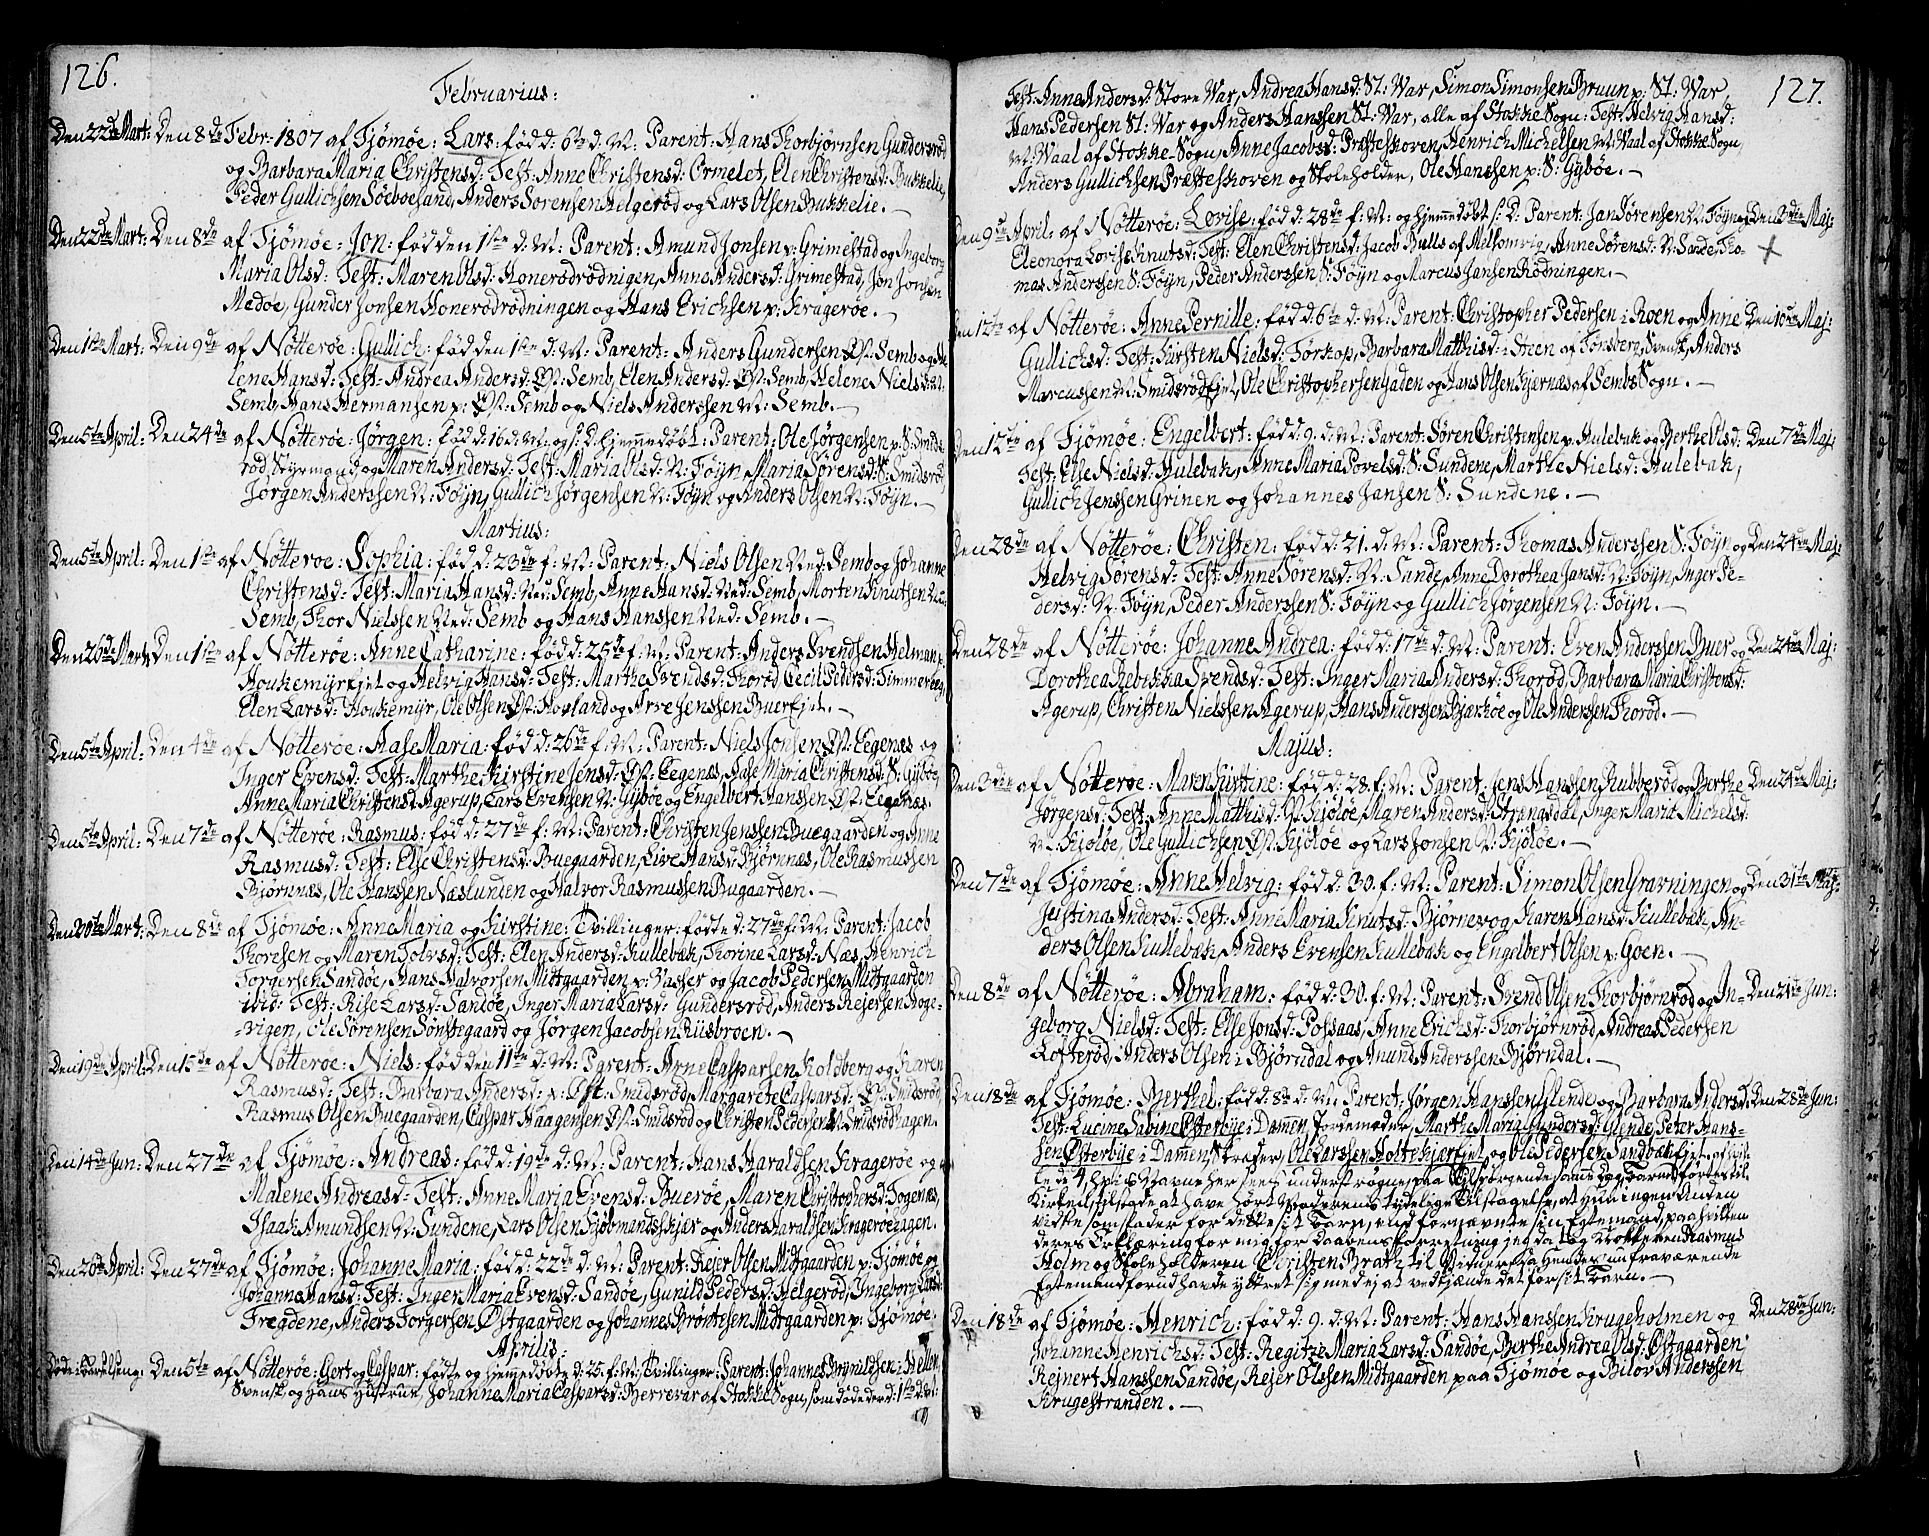 126.
Februarius:
Den 22de Mart: Den 8de Febr: 1807 af Tjømøe: Lars: fød d: 6te d: M: Parent: Hans Thorbjørnsen Gundersrød
og Barbara Maria Christensd: Test: Anne Christensd: Ormelet, Elen Christensd: Bukkelie,
Peder Gullichsen Søeboesand, Anders Sørensen Helgerød og Lars Olsen Bukkelie. —
Den 22de Mart: Den 8de af Tjømøe: Jon: fød den 1ste d: M: Parent: Amund Jonsen p: Grimestad og Ingeborg
Maria Olsd: Test: Maren Olsd: Honerødrødnigen, Anne Andersd: Grimestad, Jon Jonsen
Medøe, Gunder Jonsen Honerødrødningen og Hans Erichsen p: Kragerøe. —
Den 1ste Mart: Den 9de af Nøtterøe: Gullich: fød den 1ste d: M: Parent: Anders Gundersen Øst: Semb og He-
lene Hansd: Test: Andrea Andersd: Øst: Semb, Elen Andersd: Øst: Semb, Helene Nielsd:
Semb, Hans Hermansen p: Øst: Semb og Niels Anderssen M: Semb. —
Den 5te April: Den 24de af Nøtterøe: Jørgen: fød d: 16 d: M: og s: D: hjemmedøbt: Parent: Ole Jørgensen p: S: Smids-
rød, Styrmand og Maren Andersd: Test: Maria Olsd: N: Føyn, Maria Sørensd: S: Smidsrød,
Jørgen Anderssen N: Føyn, Gullich Jørgensen N: Føyn og Anders Olsen N: Føyn. —
Martius:
Den 5te April: Den 1ste af Nøtterøe: Sophia: fød d: 23de f: M: Parent: Niels Olsen Ned: Semb og Johanne
Christensd: Test: Maria Hansd: Ned: Semb, Anne Hansd: Ned: Semb, Morten Knutsen Ned:
Semb, Thor Nielssen Ned: Semb og Hans Hanssen Ned: Semb. —
Den 26de Mart: Den 1ste af Nøtterøe: Anne Catharine: fød d: 25de f: M: Parent: Anders Svendsen Helman p:
Houkemyrejet og Helvig Hansd: Test: Marthe Svendsd: Thorød, Cecil Pedersd: Timmeraas,
Elen Larsd: Houkemyr, Ole Olsen Øst: Hovland og Arve Jenssen Buer Ejet. —
Den 5te April: Den 4de af Nøtterøe: Aase Maria: fød d: 26de f: M: Parent: Niels Jonsen Øst: Eegenæs og
Inger Evensd: Test: Marthe Kirstine Jensd: Øst: Eegenæs, Aase Maria Christensd: S: Gybøe,
Anne Maria Christensd: Agerup, Lars Evensen N: Gybøe og Engelbert Hanssen Øst: Eegenæs.
Den 5te April: Den 7de af Nøtterøe: Rasmus: fød d: 27de f: M: Parent: Christen Jenssen Buegaarden og Anne
Rasmusd: Test: Else Christensd: Buegaarden, Live Hansd: Bjørnnæs, Ole Rasmussen
Bjørnnæs, Ole Hanssen Næslunten og Halvor Rasmussen Bugaarden. —
Den 20de Mart: Den 8de af Tjømøe: Anne Maria og Kirstine: Tvillinger: fødte d: 27de f: M: Parent: Jacob
Thoresen og Maren Tolvsd: Test: Elen Andersd: Kullebak, Thorine Larsd: Næs, Henrich
Torgersen Sandøe, Hans Halvorsen Midtgaarden p: Vasser og Jacob Pedersen Midtgaarden
ibid: Test: Rise Larsd: Sandøe, Inger Maria Larsd: Gundersrød, Anders Rejersen Hoge-
-vigen, Ole Sørensen Sønstegaard og Jørgen Jacobsen Riisbroen. —
Den 19de April: Den 15de af Nøtterøe: Niels: fød den 11te d: M: Parent: Arne Caspersen Holdberg og Karen
Rasmusd: Test: Barbara Andersd: p: Øst: Smidsrød, Margarete Caspersd: Øst: Smidsrød,
Rasmus Olsen Buegaarden, Caspar Haagensen Øst: Smidsrød og Christen Pedersen Ø: Smidsrødhagen.
Den 14de Jun: Den 27de af Tjømøe: Andreas: fød d: 19de d: M: Parent: Hans Haraldsen Kragerøe og
Malene Andreasd: Test: Anne Maria Evensd: Buerøe, Maren Christophersd: Fogenæs,
Isaak Amundsen N: Sundene, Lars Olsen Kjøbmandskjær og Anders Haraldsen Kragerøehagen.
Den 26de April: Den 27de af Tjømøe: Johanne Maria: fød d: 22de d: M: Parent: Rejer Olsen Midtgaarden p: Tjømøe og
Johanne Hansd: Test: Inger Maria Evensd: Sandøe, Gunild Pedersd: Helgerød, Ingeborg Larsd:
Fregdene, Anders Torgersen Østgaarden og Johannes Brøntesen Midtgaarden p: Tjømøe.
Aprilis:
Den 5te af Nøtterøe: Gert og Caspar: fødte og hjemmedøbte d: 25. f: M: Tvillinger: Parent: Johannes Brynildsen i Hellen,
Svensk, og Hans Hustrue, Johanne Maria Caspersd: Berrevar af Stokke Sogn, som døde der d: 1ste d: M:
127.
Test: Anne Andersd: Store War, Andrea Hansd: St: War, Simon Simonsen Bruun p: St: War,
Hans Pedersen St: War og Anders Hanssen St: War, alle af Stokke Sogn: Test: Helvig Hansd:
M: Waal af Stokke Sogn, Anne Jacobsd: Præsteskoven, Henrich Michelsen M: Waal af Stokke Sogn,
Anders Gullichsen Præsteskoven og Stoleholder, Ole Hanssen p: S: Gybøe. —
Den 9de April: af Nøtterøe: Lovise: fød d: 28de f: M: og hjemmedøbt s: D: Parent: Jan Sørensen N: Føyn og Den 3de Maj:
Eleonora Lovise Knutsd: Test: Elen Christensd: Jacob Bulls af Melsomvig, Anne Sørensd: N: Sande, Tho-
mas Anderssen S: Føyn, Peder Anderssen S: Føyn og Marcus Jansen Rødningen. —
Den 12te af Nøtterøe: Anne Pernille: fød d: 6te d: M: Parent: Christopher Pedersen i Roen og Anne Den 10de Maj:
Gullichsd: Test: Kirsten Nielsd: Førkop, Barbara Matthisd: i Steen af Tønsberg, Svensk, Anders
Marcussen N: Smidsrødejet, Ole Christophersen Gaden og Hans Olsen Kjærnæs af Sembs Sogn. —
Den 12te af Tjømøe: Engelbert: fød d: 9. d: M: Parent: Søren Christensen p: Hulebak og Berthe Olsd: Den 7de Maj:
Test: Else Nielsd: Hulebak, Anne Maria Povelsd: S: Sundene, Marthe Nielsd: Hulebak,
Gullich Jenssen Grinen og Johannes Jansen S: Sundene. —
Den 28de af Nøtterøe: Christen: fød d: 21. d: M: Parent: Thomas Anderssen S: Føyn og Den 24de Maj:
Helvig Sørensd: Test: Anne Sørensd: N: Sande, Anne Dorothea Jansd: N: Føyn, Inger Pe-
dersd: N: Føyn, Peder Anderssen S: Føyn og Gullich Jørgensen N: Føyn. —
Den 28de af Nøtterøe: Johanne Andrea: fød d: 17de d: M: Parent: Even Anderssen Buer og Den 24de Maj:
Dorothea Rebikka Svendsd: Test: Inger Maria Andersd: Thorød, Barbara Maria Christensd:
Agerup, Christen Nielssen Agerup, Hans Anderssen Bjærkøe og Ole Anderssen Thorød. —
Majus:
Den 3die af Nøtterøe: Maren Kirstine: fød d: 28. f: M: Parent: Jens Hanssen Rubberød og Berthe Den 24de Maj:
Jørgensd: Test: Anne Matthisd: V: Kjøløe, Maren Andersd: Strangsdal, Inger Maria Michelsd:
V: Kjøløe, Ole Gullichsen Øst: Kjøløe og Lars Jonsen V: Kjøløe. —
Den 7de af Tjømøe: Anne Helvig: fød d: 30. f: M: Parent: Simon Olsen Gravningen og Den 31te Maj:
Jestina Andersd: Test: Anne Maria Knutsd: Bjørnevog, Karen Hansd: Kullebak, An-
ders Olsen Kullebak, Anders Evensen Kullebak og Engelbert Olsen p: Goen. —
Den 8de af Nøtterøe: Abraham: fød d: 30. f: M: Parent: Svend Olsen Thorbjørnrød og In- Den 21de Jun:
geborg Nielsd: Test: Else Jonsd: Possaas, Anne Erichsd: Thorbjørnrød, Andreas Pedersen
Lofterød, Anders Olsen i Bjørndal og Anund Anderssen Bjørndal. —
Den 18de af Tjømøe: Berthel: fød d: 8de d: M: Parent: Jørgen Hanssen Glende og Barbara Andersd: Den 28de Jun:
Test: Lucine Sabine Østerbye i Damen, Jordemoder, Marthe Maria Gundersd: Glende, Peter Hans-
sen Østerbye i Damen, Skræder, Ole Larssen Holtekjærejet, og Ole Pedersen Sandbækejet, af hvil-
lede 4, hvis Navne her sees understrøgne, paa Tilspørgende, same Dag Barnet førtes til
Kirken, tilstode at have hørt Moderens tydelige Tilstaaelse, at hun ingen Anden
vidste som Fader for dette sit Barn, end fornævnte sin Egtemand, paa hvilken
deres Erklæring for mig for Daabens Forretning jeg da tog Klokkeren Rasmus
Holm og Stoleholderen Christen Brath til Vidner, da Hendes nu fraværende
Egtemand forud havde yttret sig med ej at vedkjende det for sit Barn. —
Den 18de af Tjømøe: Henrich: fød d: 9. d: M: Parent: Hans Hanssen Krugeholmen og Den 28de Jun:
Johanne Henrichsd: Test: Regitze Maria Larsd: Sandøe, Berthe Andrea Olsd: Østgaarden,
Rejnert Hanssen Sandøe, Rejer Olssen Midtgaarden paa Tjømøe og Biløv Anderssen
Krugestranden. —